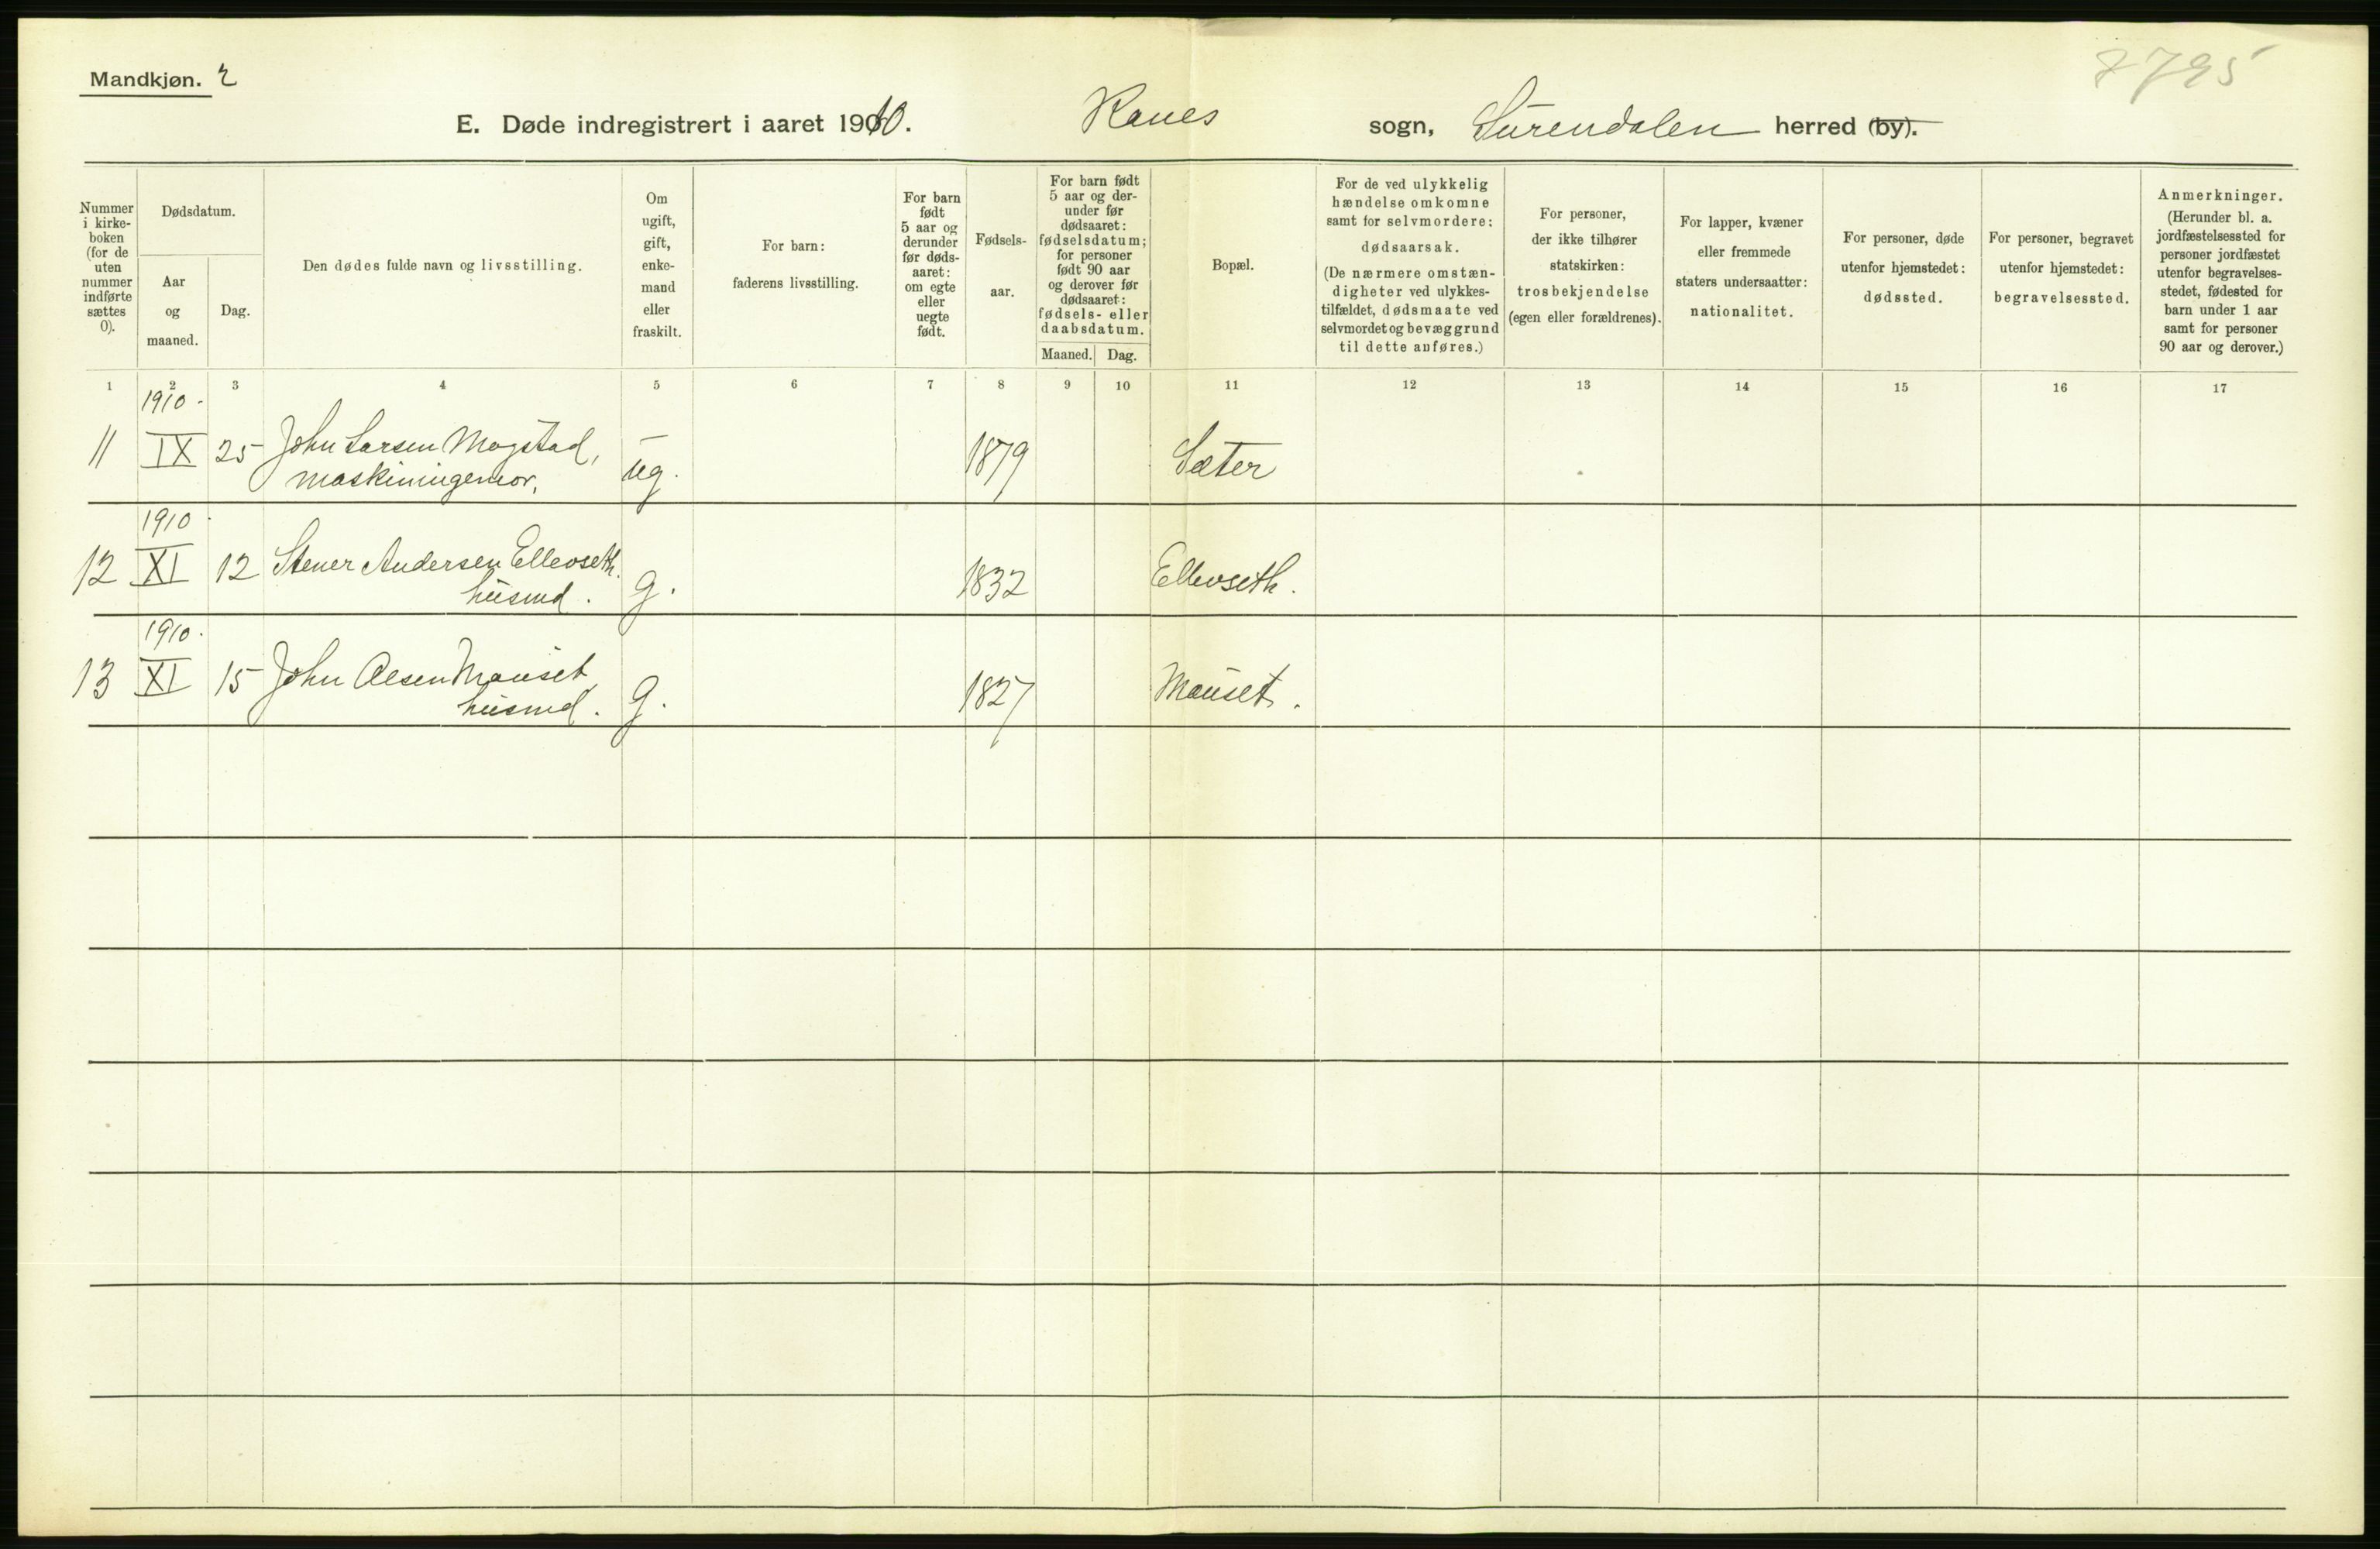 Mandkjøn. 2
7795
E. Døde indregistrert i aaret 1910. Ranes sogn, Surendalen herred (by).
Nummer i kirke- boken (for de uten nummer indførte sættes 0).
Dødsdatum.
Aar og maaned.
Dag.
Den dødes fulde navn og livsstilling.
Om ugift, gift, enke- mand eller fraskilt.
For barn: faderens livsstilling.
For barn født 5 aar og derunder før døds- aaret: om egte eller uegte født.
Fødsels- aar.
For barn født 5 aar og der- under før dødsaaret: fødselsdatum; for personer født 90 aar og derover før dødsaaret: fødsels- eller daabsdatum.
Maaned. Dag.
Bopæl.
For de ved ulykkelig hændelse omkomne samt for selvmordere: dødsaarsak. (De nærmere omstæn- digheter ved ulykkes- tilfældet, dødsmaate ved selvmordet og bevæggrund til dette anføres.)
For personer, der ikke tilhører statskirken: trosbekjendelse (egen eller forældrenes).
For lapper, kvæner eller fremmede staters undersaatter: nationalitet.
For personer, døde utenfor hjemstedet: dødssted.
For personer, begravet utenfor hjemstedet: begravelsessted.
Anmerkninger. (Herunder bl. a. jordfæstelsessted for personer jordfæstet utenfor begravelses- stedet, fødested for barn under 1 aar samt for personer 90 aar og derover.)
1 2 3 4 5 6 7 8 9 10 11 12 13 14 15 16 17
1910.
11 IX 25 John Larsen Mogstad, ug. 1879 Sæter
maskiningeniør.
1910
12 XI 12 Stener Andersen Ellevseth. g. 1832 Ellevseth.
husmd.
1910.
13 XI 15 John Olsen Mauset g. 1827 Mauset.
husmd.